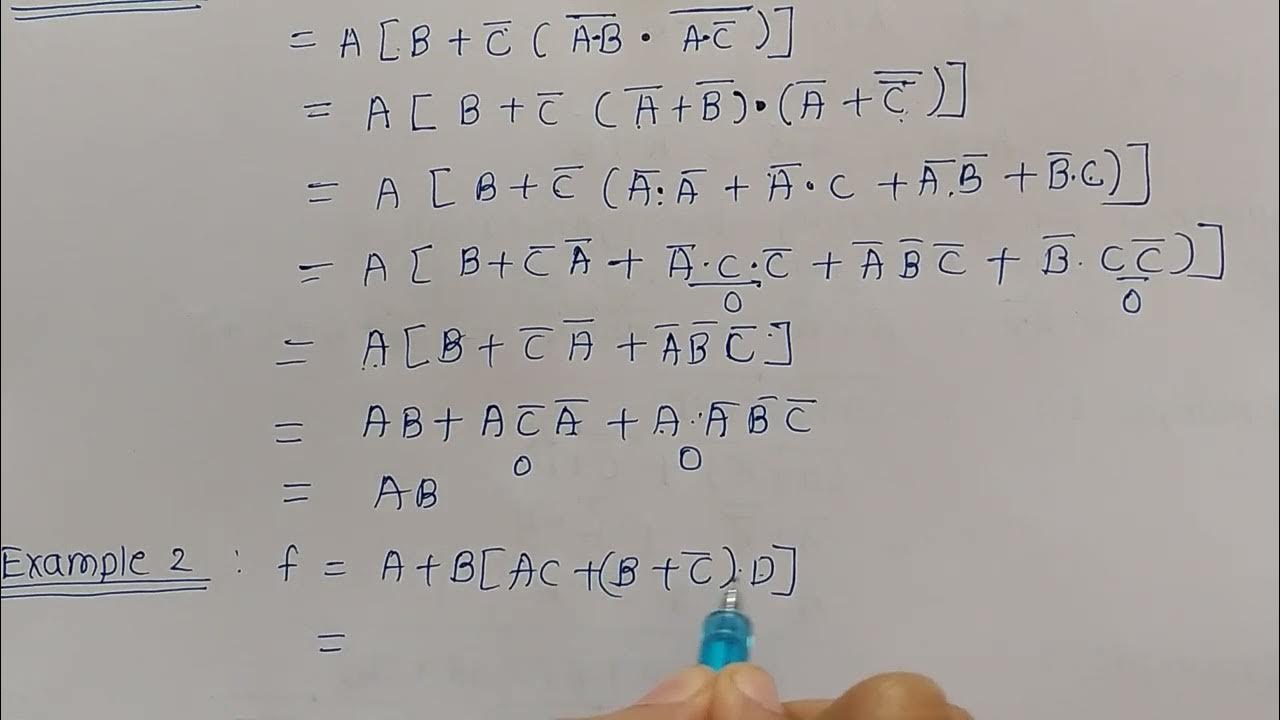 = A [ B + C̅ ( \overline{A·B} · \overline{A·C̅} ) ]
= A [ B + C̅ ( A̅ + B̅ ) · ( A̅ + \overline{C̅} ) ]
= A [ B + C̅ ( A̅·A̅ + A̅·C + A̅.B̅ + B̅.C ) ]
= A [ B + C̅ A̅ + A̅·C·C̅ + A̅ B̅ C̅ + B̅. C C̅ ) ]
0 0
= A [ B + C̅ A̅ + A̅ B̅ C̅ ]
= AB + A C̅ A̅ + A·A̅ B̅ C̅
0 0
= AB
Example 2 : f = A + B [ AC + ( B + C̅ ) · D ]
=